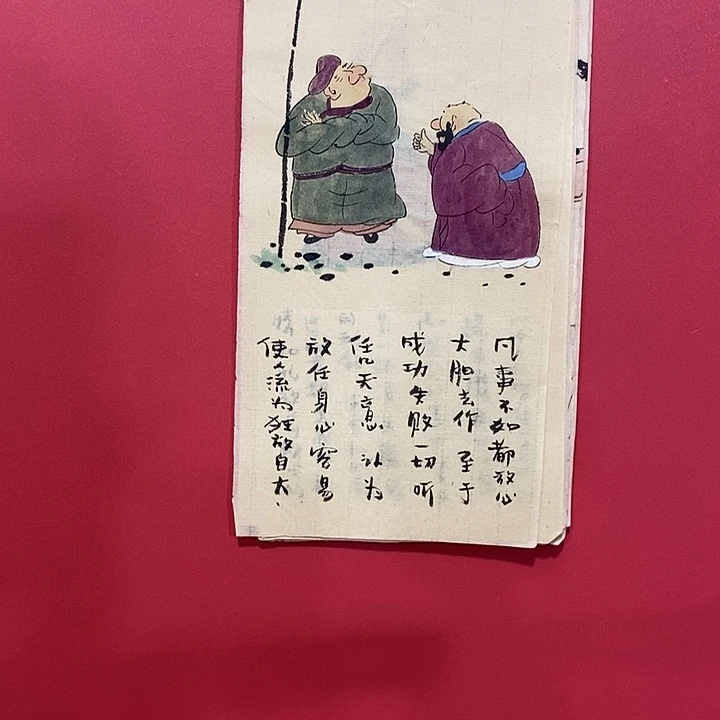 凡事不如都放心
大胆去作 至于
成功失败一切听
任凭天意 认为
放任身心容易
使人流为狂放自大、